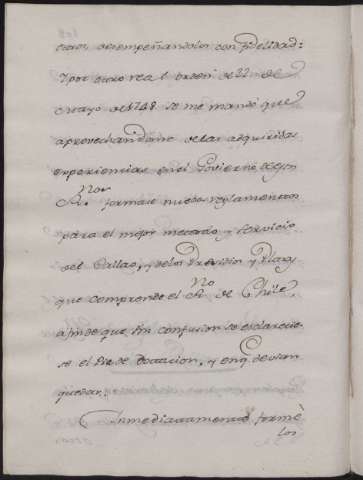 desempeñandolos con fidelidad:
Y por otro real orden de 22 de
Mayo de 1748 se me mandó que
aprovechandome de las adquiridas
experiencias en el Govierno de este
Rno. formase nuevos reglamentos
para el mejor metodo, y servicio
del Callao, y delos Presidios y Plazas
que comprende el Rno de Chile,
afin de que sin confusion se esclarecie-
se el Pie de Dotacion, y enq. devian
quedar.
Inmediatamente formè
los